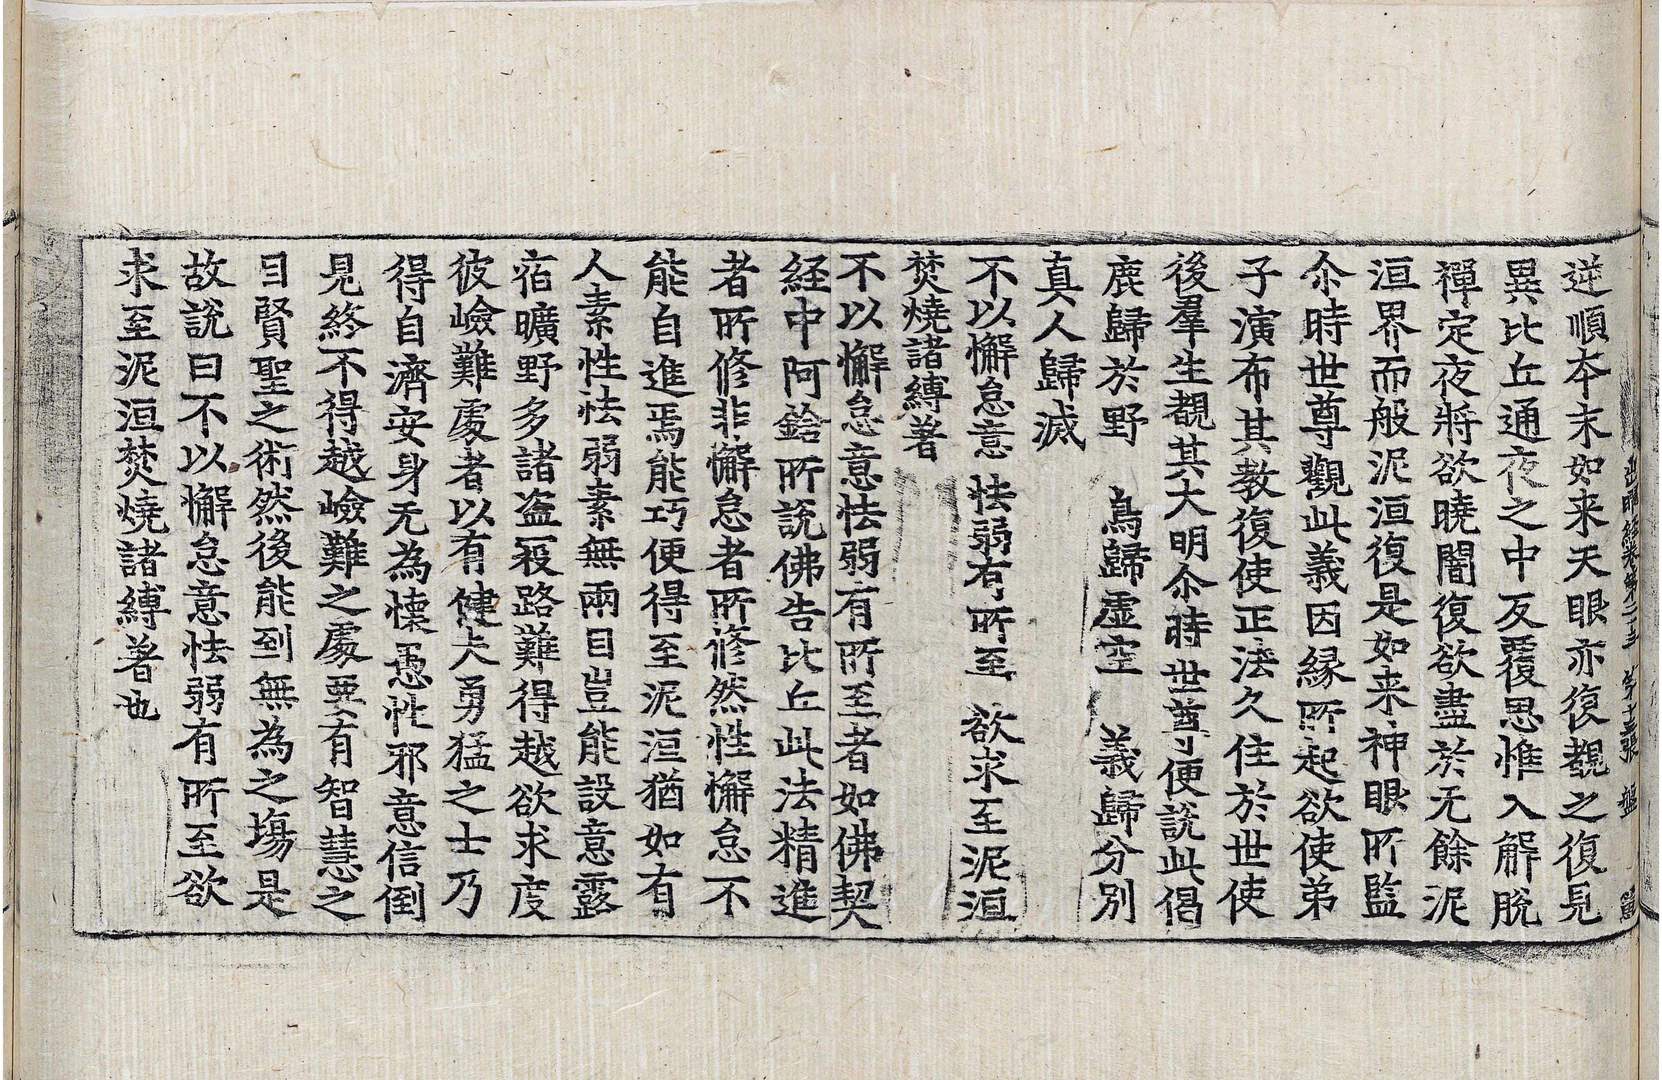 出曜經卷第二十三 第十五張 盤
逆順本末如来天眼亦復覩之復見
異比丘通夜之中反覆思惟入解脫
禪定夜將欲曉闇復欲盡於无餘泥
洹界而般泥洹復是如来神眼所監
尒時世尊觀此義因緣所起欲使弟
子演布其教復使正法久住於世使
後羣生覩其大明尒時世尊便說此偈
鹿歸於野 鳥歸虛空 義歸分別
真人歸滅
不以懈怠意 怯弱有所至 欲求至泥洹
焚燒諸縛著
不以懈怠意怯弱有所至者如佛契
経中阿鋡所說佛告比丘此法精進
者所修非懈怠者所修然性懈怠不
能自進焉能巧便得至泥洹猶如有
人素性怯弱素無兩目豈能設意露
宿曠野多諸盗𧧻路難得越欲求度
彼嶮難處者以有健夫勇猛之士乃
得自濟安身无為懷愚性邪意信倒
見終不得越嶮難之處要有智慧之
目賢聖之術然後能到無為之塲是
故說曰不以懈怠意怯弱有所至欲
求至泥洹焚燒諸縛著也